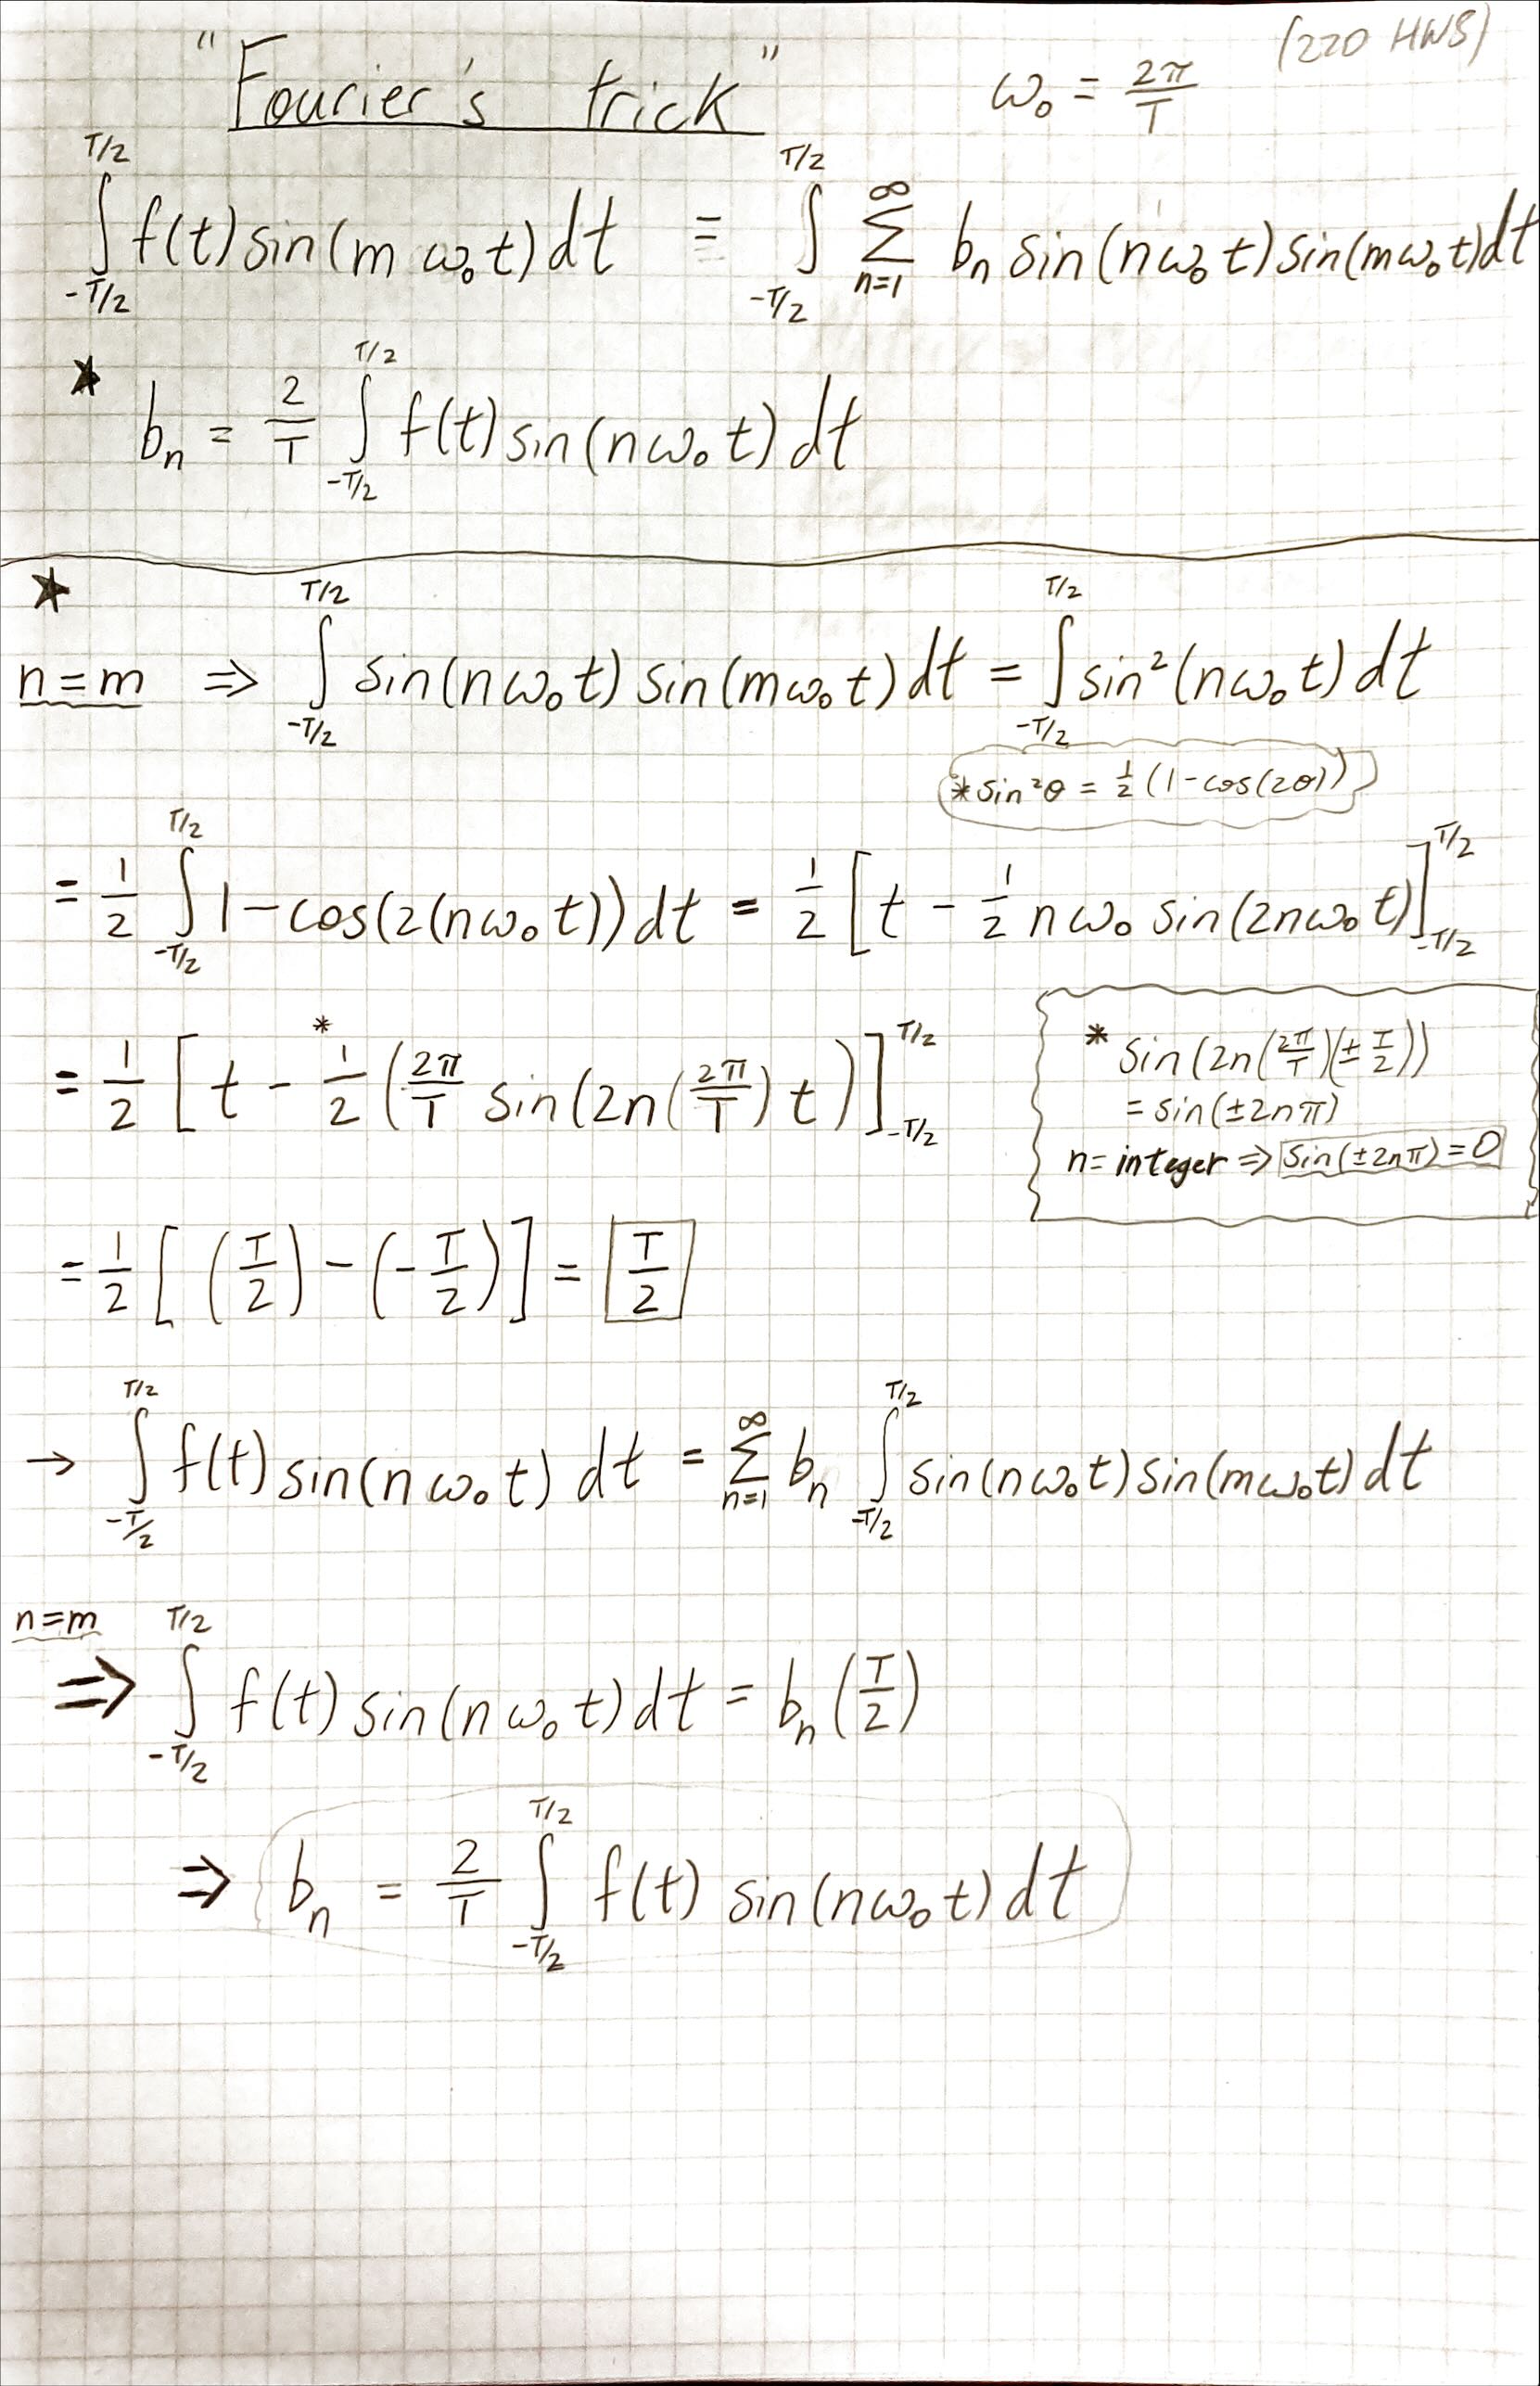 "Fourier's trick" ω₀ = 2π/T (220 HW8)
∫_{-T/2}^{T/2} f(t) sin(m ω₀ t) dt = ∫_{-T/2}^{T/2} ∑_{n=1}^{∞} bₙ sin(nω₀ t) sin(mω₀ t) dt
★ bₙ = 2/T ∫_{-T/2}^{T/2} f(t) sin(nω₀ t) dt
★
n=m ⇒ ∫_{-T/2}^{T/2} sin(nω₀t) sin(mω₀t) dt = ∫_{-T/2}^{T/2} sin²(nω₀t) dt
*sin²θ = ½ (1-cos(2θ))
= 1/2 ∫_{-T/2}^{T/2} 1-cos(2(nω₀t)) dt = 1/2 [t - 1/2 nω₀ sin(2nω₀t)]_{-T/2}^{T/2}
= 1/2 [t - *1/2 (2π/T sin(2n(2π/T) t)]_{-T/2}^{T/2}
* sin(2n(2π/T)(± T/2))
= sin(±2nπ)
n= integer ⇒ sin(±2nπ)=0
= 1/2 [(T/2) - (-T/2)] = T/2
→ ∫_{-T/2}^{T/2} f(t) sin(n ω₀ t) dt = ∑_{n=1}^{∞} bₙ ∫_{-T/2}^{T/2} sin(nω₀t) sin(mω₀t) dt
n=m
⇒ ∫_{-T/2}^{T/2} f(t) sin(n ω₀ t) dt = bₙ (T/2)
⇒ bₙ = 2/T ∫_{-T/2}^{T/2} f(t) sin(nω₀t) dt